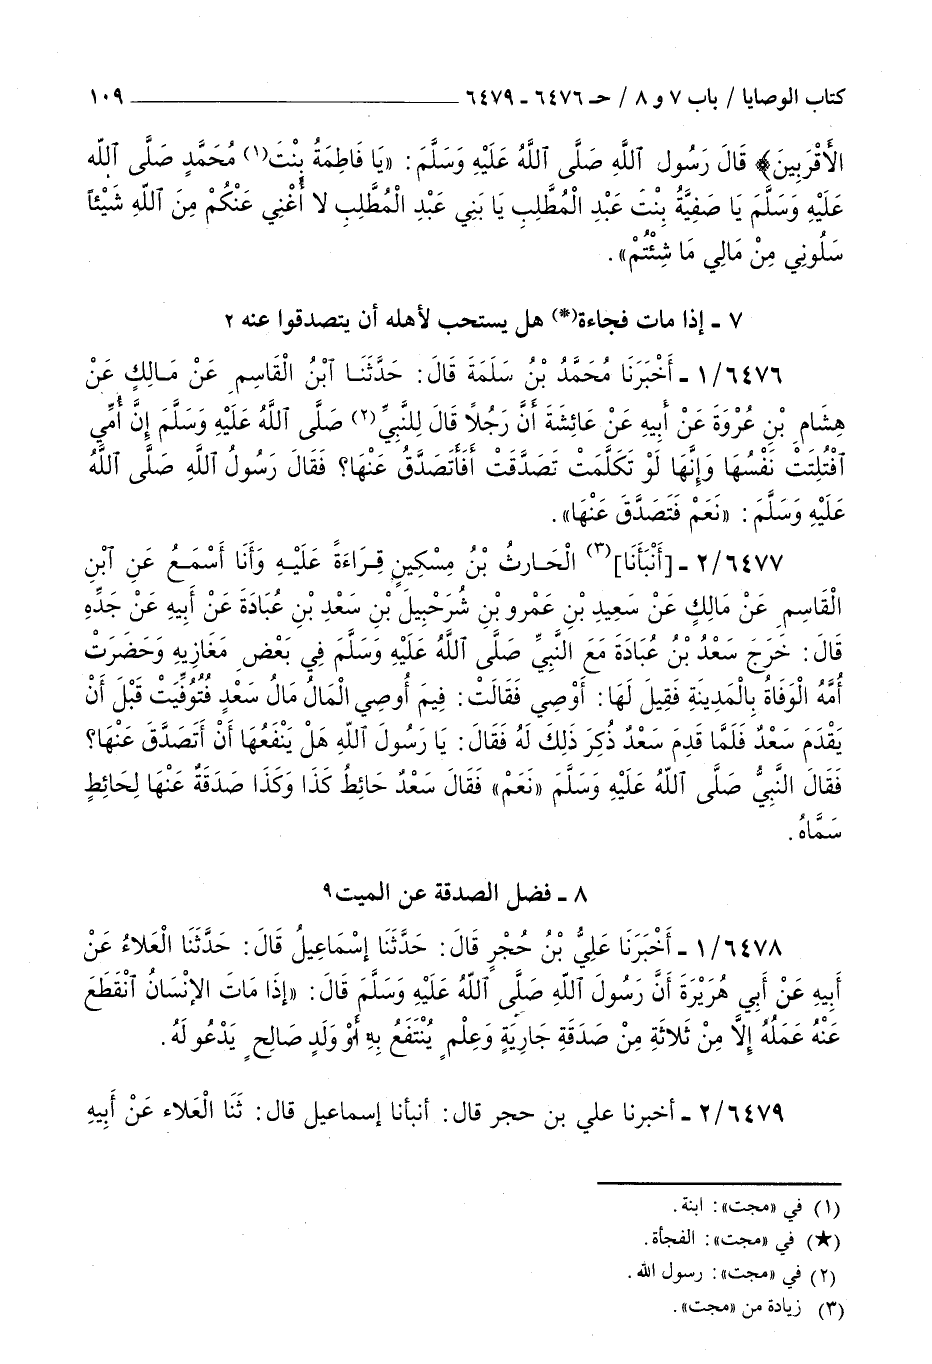 كتاب الوصايا / باب ٧ و ٨ / حـ ٦٤٧٦ ـ ٦٤٧٩ ــــــــــــــــــ ١٠٩
الأَقْرَبِينَ﴾ قَالَ رَسُول اللهِ صَلَّى اللَّهُ عَلَيْهِ وَسَلَّمَ: «يَا فَاطِمَةُ بِنْتَ(١) مُحَمَّدٍ صَلَّى اللَّه
عَلَيْهِ وَسَلَّمَ يَا صَفِيَّةُ بِنْتَ عَبْدِ الْمُطَّلِبِ يَا بَنِي عَبْدِ الْمُطَّلِبِ لا أُغْنِي عَنْكُمْ مِنَ اللهِ شَيْئاً
سَلُونِي مِنْ مَالِي مَا شِئْتُمْ».
٧ ـ إذا مات فجاءة(*) هل يستحب لأهله أن يتصدقوا عنه ٢
١/٦٤٧٦ ـ أَخْبَرَنَا مُحَمَّدُ بْنُ سَلَمَةَ قَالَ: حَدَّثَنَا ابْنُ الْقَاسِمِ عَنْ مَالِكٍ عَنْ
هِشَامِ بْنِ عُرْوَةَ عَنْ أَبِيهِ عَنْ عَائِشَةَ أَنَّ رَجُلًا قَالَ لِلنَّبِيِّ(٢) صَلَّى اللَّهُ عَلَيْهِ وَسَلَّمَ إِنَّ أُمِّي
افْتُلِتَتْ نَفْسُهَا وَإِنَّهَا لَوْ تَكَلَّمَتْ تَصَدَّقَتْ أَفَأَتَصَدَّقُ عَنْهَا؟ فَقَالَ رَسُولُ اللهِ صَلَّى اللَّهُ
عَلَيْهِ وَسَلَّمَ: «نَعَمْ فَتَصَدَّقَ عَنْهَا».
٢/٦٤٧٧ ـ [أَنْبَأَنَا](٣) الْحَارِثُ بْنُ مِسْكِينٍ قِرَاءَةً عَلَيْهِ وَأَنَا أَسْمَعُ عَنِ ابْنِ
الْقَاسِمِ عَنْ مَالِكٍ عَنْ سَعِيدِ بْنِ عَمْرِو بْنِ شُرَحْبِيلَ بْنِ سَعْدِ بْنِ عُبَادَةَ عَنْ أَبِيهِ عَنْ جَدِّهِ
قَالَ: خَرَجَ سَعْدُ بْنُ عُبَادَةَ مَعَ النَّبِيِّ صَلَّى اللَّهُ عَلَيْهِ وَسَلَّمَ فِي بَعْضِ مَغَازِيهِ وَحَضَرَتْ
أُمَّهُ الْوَفَاةُ بِالْمَدِينَةِ فَقِيلَ لَهَا: أَوْصِي فَقَالَتْ: فِيمَ أُوصِي الْمَالُ مَالُ سَعْدٍ فَتُوُفِّيَتْ قَبْلَ أَنْ
يَقْدَمَ سَعْدٌ فَلَمَّا قَدِمَ سَعْدٌ ذُكِرَ ذَلِكَ لَهُ فَقَالَ: يَا رَسُولَ اللهِ هَلْ يَنْفَعُهَا أَنْ أَتَصَدَّقَ عَنْهَا؟
فَقَالَ النَّبِيُّ صَلَّى اللَّهُ عَلَيْهِ وَسَلَّمَ «نَعَمْ» فَقَالَ سَعْدٌ حَائِطُ كَذَا وَكَذَا صَدَقَةٌ عَنْهَا لِحَائِطٍ
سَمَّاهُ.
٨ ـ فضل الصدقة عن الميت ٩
١/٦٤٧٨ ـ أَخْبَرَنَا عَلِيُّ بْنُ حُجْرٍ قَالَ: حَدَّثَنَا إِسْمَاعِيلُ قَالَ: حَدَّثَنَا الْعَلاءُ عَنْ
أَبِيهِ عَنْ أَبِي هُرَيْرَةَ أَنَّ رَسُولَ اللهِ صَلَّى اللَّهُ عَلَيْهِ وَسَلَّمَ قَالَ: «إِذَا مَاتَ الإِنْسَانُ انْقَطَعَ
عَنْهُ عَمَلُهُ إِلَّا مِنْ ثَلَاثَةٍ مِنْ صَدَقَةٍ جَارِيَةٍ وَعِلْمٍ يُنْتَفَعُ بِهِ أَوْ وَلَدٍ صَالِحٍ يَدْعُو لَهُ.
٢/٦٤٧٩ ـ أخبرنا علي بن حجر قال: أنبأنا إسماعيل قال: ثَنَا الْعَلاء عَنْ أَبِيهِ
(١) في «مجت»: ابنة.
(★) في «مجت»: الفجأة.
(٢) في «مجت»: رسول الله.
(٣) زيادة من «مجت».